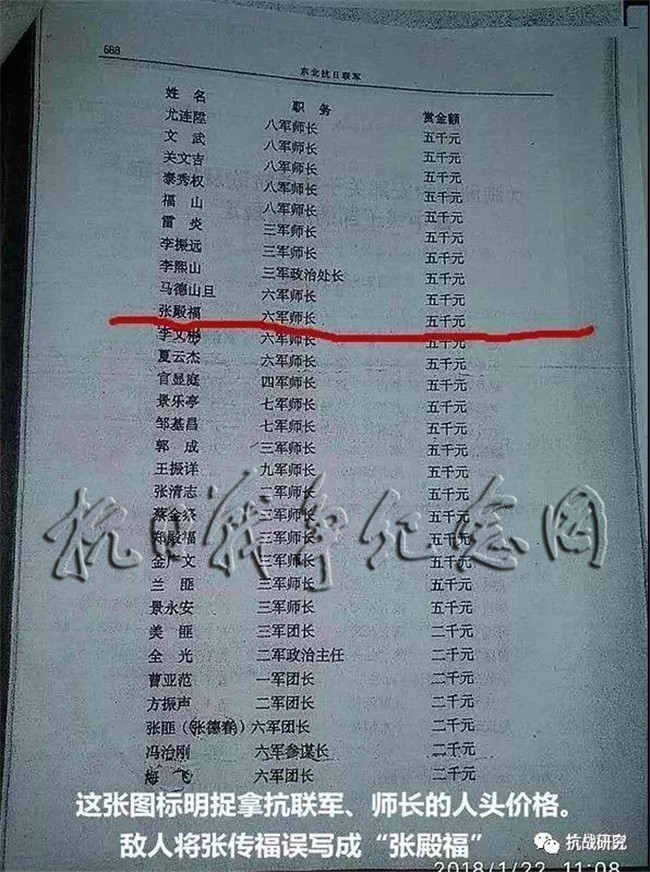 588
东北抗日联军
姓名 职务 赏金额
尤连陞 八军师长 五千元
文武 八军师长 五千元
关文吉 八军师长 五千元
秦秀权 八军师长 五千元
福山 八军师长 五千元
雷炎 三军师长 五千元
李振远 三军师长 五千元
李熙山 三军政治处长 五千元
马德山旦 六军师长 五千元
张殿福 六军师长 五千元
李文彬 六军师长 五千元
夏云杰 六军师长 五千元
官显庭 四军师长 五千元
景乐亭 七军师长 五千元
邹基昌 七军师长 五千元
郭成 三军师长 五千元
王振详 九军师长 五千元
张清志 二军师长 五千元
蔡金 三军师长 五千元
郑殿福 三军师长 五千元
金 文 三军师长 五千元
兰匪 三军师长 五千元
景永安 三军师长 五千元
美匪 三军团长 二千元
全光 二军政治主任 二千元
曹亚范 一军团长 二千元
方振声 二军团长 二千元
张匪(张德春) 六军团长 二千元
冯治刚 六军参谋长 二千元
梅飞 六军团长 二千元
抗日战争纪念网
这张图标明捉拿抗联军、师长的人头价格。
敌人将张传福误写成“张殿福”
抗战研究
2018/1/22 11:08